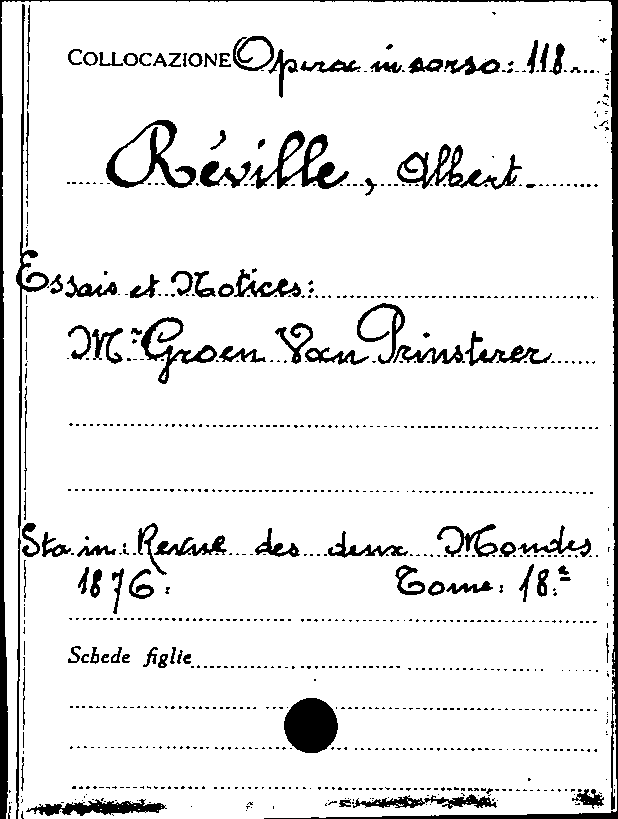 COLLOCAZIONE Opera in corso: 118.
Réville, Albert.
Essais et Notices:
Mr. Groen Van Prinsterer
Sta in: Revue des deux Mondes
1876: Tome: 18.e
Schede figlie